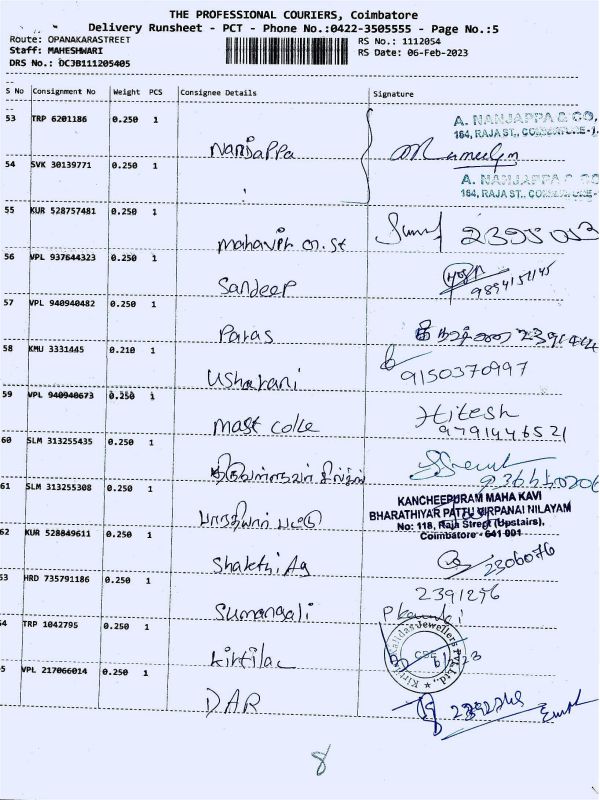 THE PROFESSIONAL COURIERS, Coimbatore
Delivery Runsheet - PCT - Phone No.:0422-3505555 - Page No.:5
Route: OPANAKARASTREET RS No.: 1112054
Staff: MAHESHWARI RS Date: 06-Feb-2023
DRS No.: DCJB111205405
S No Consignment No Weight PCS Consignee Details Signature
53 TRP 6201186 0.250 1 Nanjappa
A. NANJAPPA & CO,
164, RAJA ST., COIMBATORE-1.
54 SVK 30139771 0.250 1
A. NANJAPPA & CO
164, RAJA ST., COIMBATORE-
55 KUR 528757481 0.250 1
56 VPL 937644323 0.250 1 Sandeep 9894151145
57 VPL 940940482 0.250 1 Paras
58 KMU 3331445 0.210 1 Usharani 9150370997
59 VPL 940940673 0.250 1 Mast Hitesh
9791446521
60 SLM 313255435 0.250 1
61 SLM 313255308 0.250 1
KANCHEEPURAM MAHA KAVI
BHARATHIYAR PATTU VIRPANAI NILAYAM
No: 118, Raja Street (Upstairs),
Coimbatore - 641 001
62 KUR 528849611 0.250 1 Shakthi Ag 2306076
63 HRD 735791186 0.250 1 Sumangali 2391256
64 TRP 1042795 0.250 1 Kirtilac
5 VPL 217066014 0.250 1 DAR
8